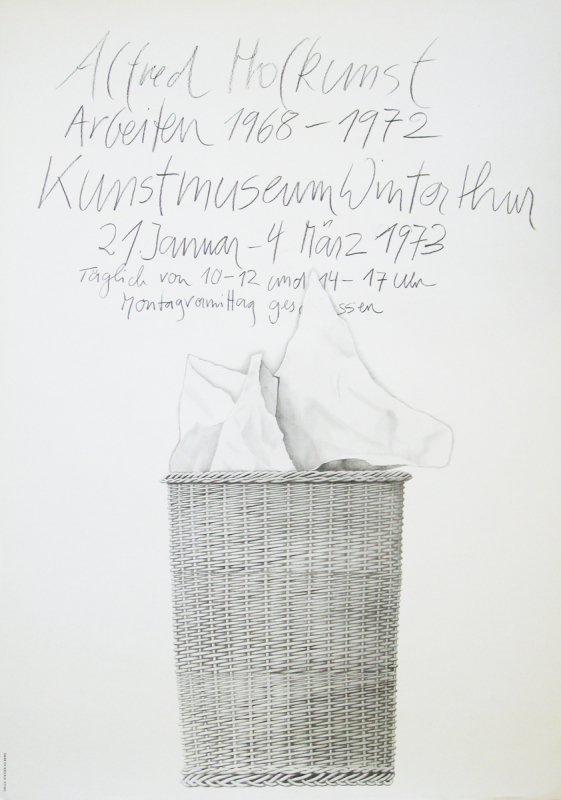 Alfred Hofkunst
Arbeiten 1968 – 1972
Kunstmuseum Winterthur
21. Januar – 4. März 1973
Täglich von 10 – 12 und 14 – 17 Uhr
Montagvormittag ges ssen